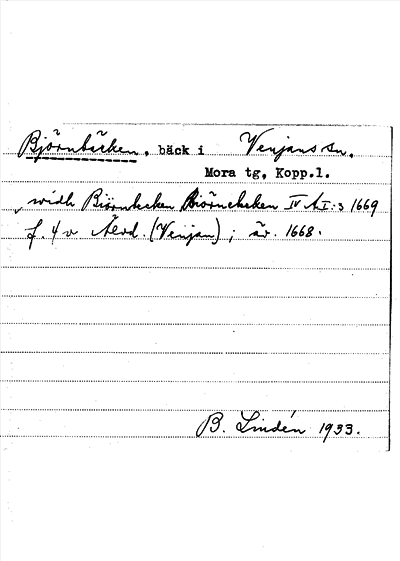 Björnbäcken, bäck i Venjans sn,
Mora tg, Kopp.l.
widh Biörnbecken Biörnebeken IV A I:3 1669
f. 4 v Älvd. (Venjan); är. 1668.
B. Lindén 1933.